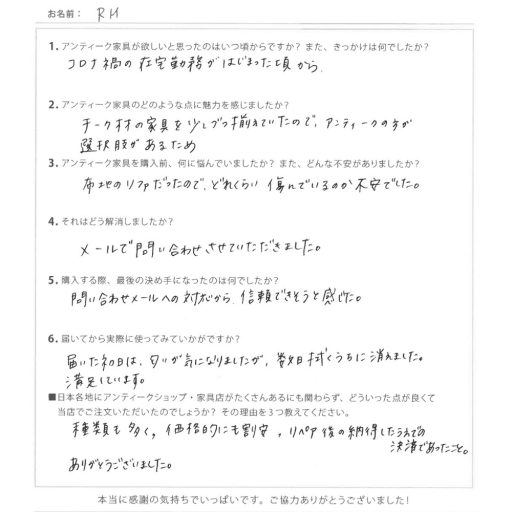 お名前： RM
1. アンティーク家具が欲しいと思ったのはいつ頃からですか？ また、きっかけは何でしたか？
コロナ禍の在宅勤務がはじまった頃から。
2. アンティーク家具のどのような点に魅力を感じましたか？
チーク材の家具を少しづつ揃えていたので、アンティークの方が
選択肢があるため
3. アンティーク家具を購入前、何に悩んでいましたか？ また、どんな不安がありましたか？
布地のソファだったので、どれくらい傷んでいるのか不安でした。
4. それはどう解消しましたか？
メールで問い合わせさせていただきました。
5. 購入する際、最後の決め手になったのは何でしたか？
問い合わせメールへの対応から信頼できそうと感じた。
6. 届いてから実際に使ってみていかがですか？
届いた初日は、匂いが気になりましたが、数日拭くうちに消えました。
満足しています。
■日本各地にアンティークショップ・家具店がたくさんあるにも関わらず、どういった点が良くて
当店でご注文いただいたのでしょうか？ その理由を3つ教えてください。
種類も多く，価格的にも割安，リペア後の納得したうえでの
決済であったこと。
ありがとうございました。
本当に感謝の気持ちでいっぱいです。ご協力ありがとうございました！